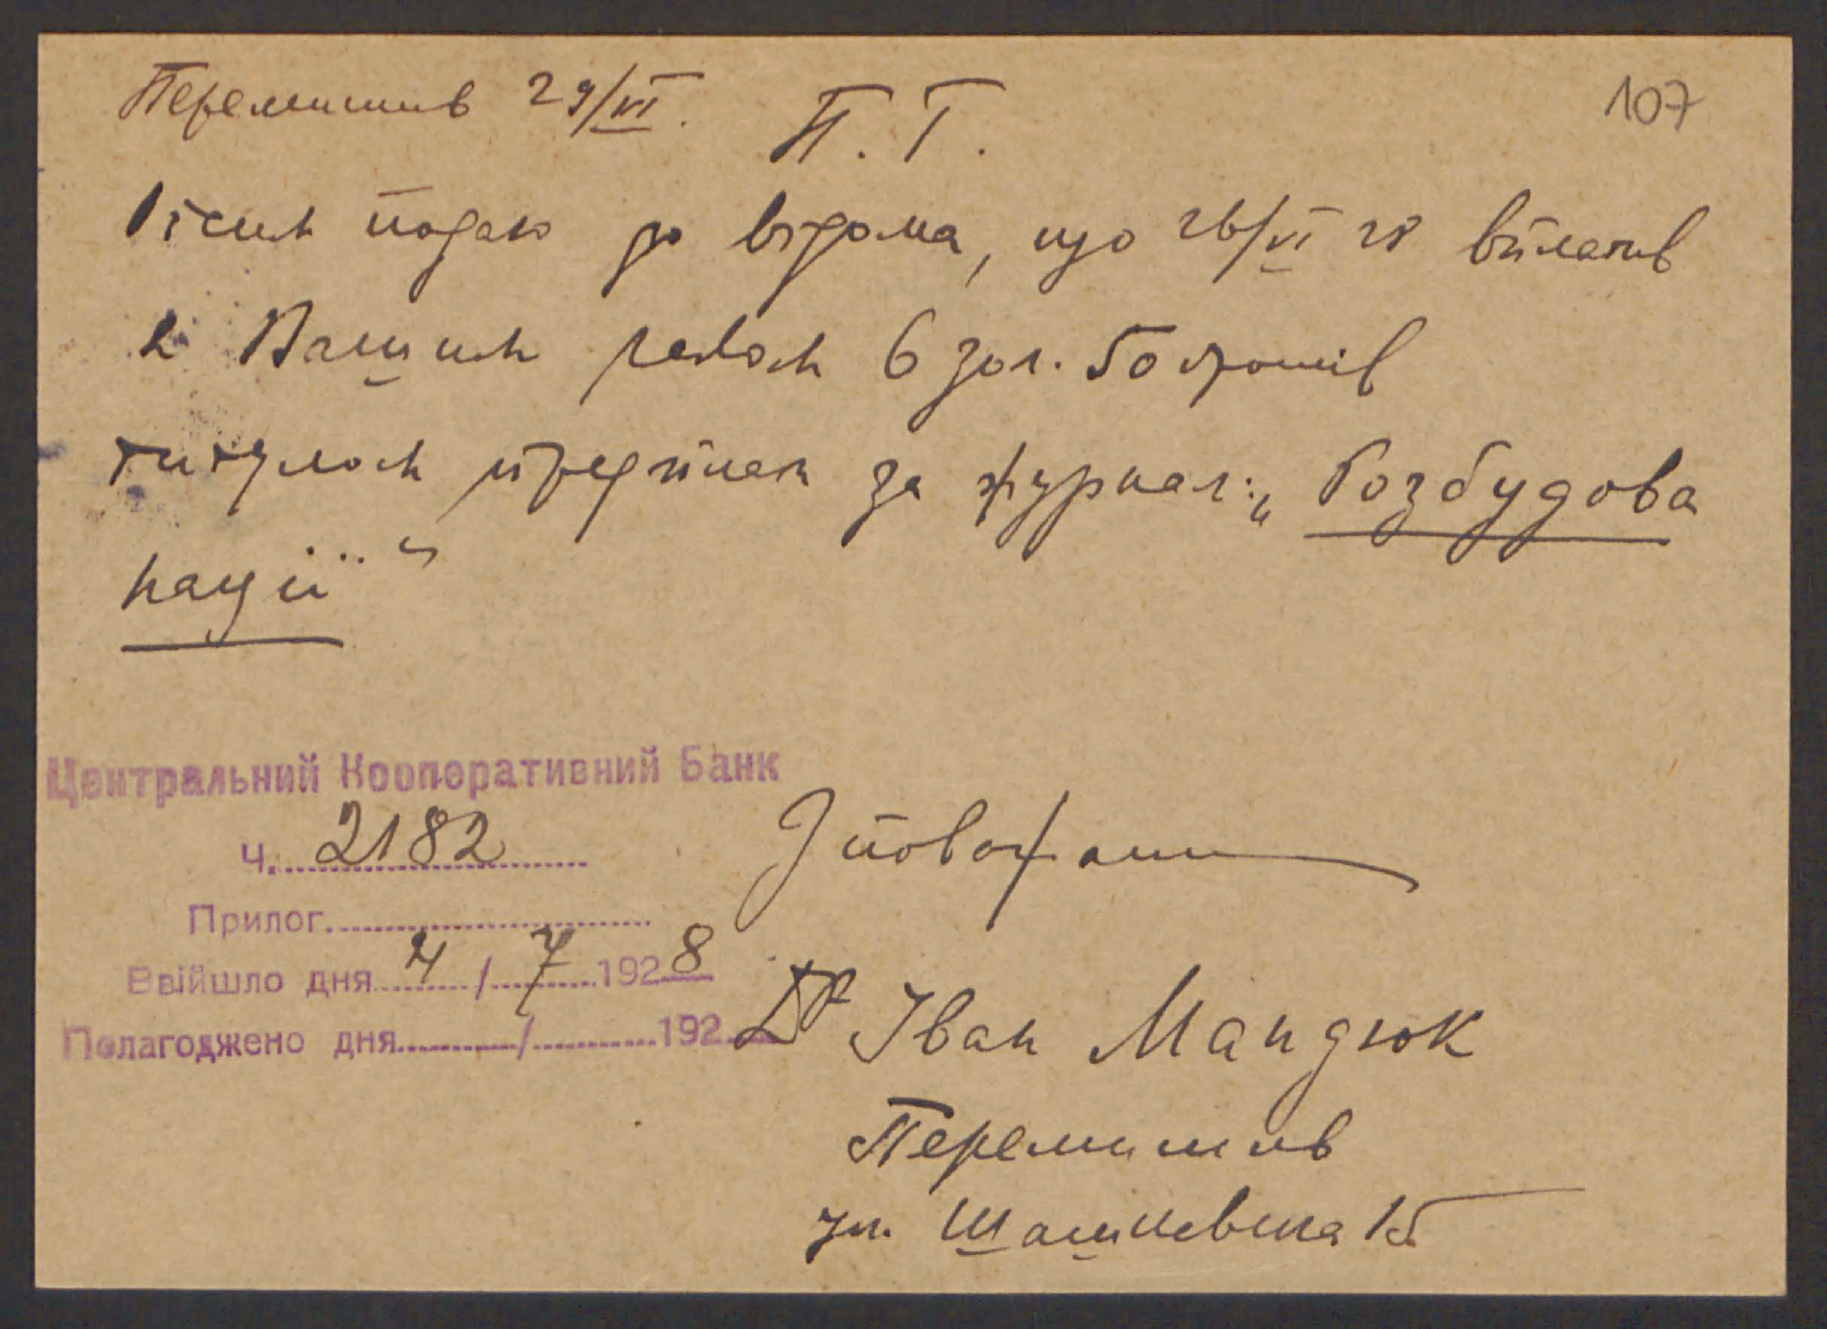 Перемишль 29/VI.
107
П. Т.
Сим подаю до відома, що 26/VI 28 вплатив
я Вашим чеком 6 зол. 50 грошів
титулом предплати за журнал: „Розбудова
нації"
Центральний Кооперативний Банк
Ч. 2182
Прилог.
Ввійшло дня 4/7 1928
Полагоджено дня / 192
З поважанням
Др Іван Мандюк
Перемишль
ул. Шашкевича 15